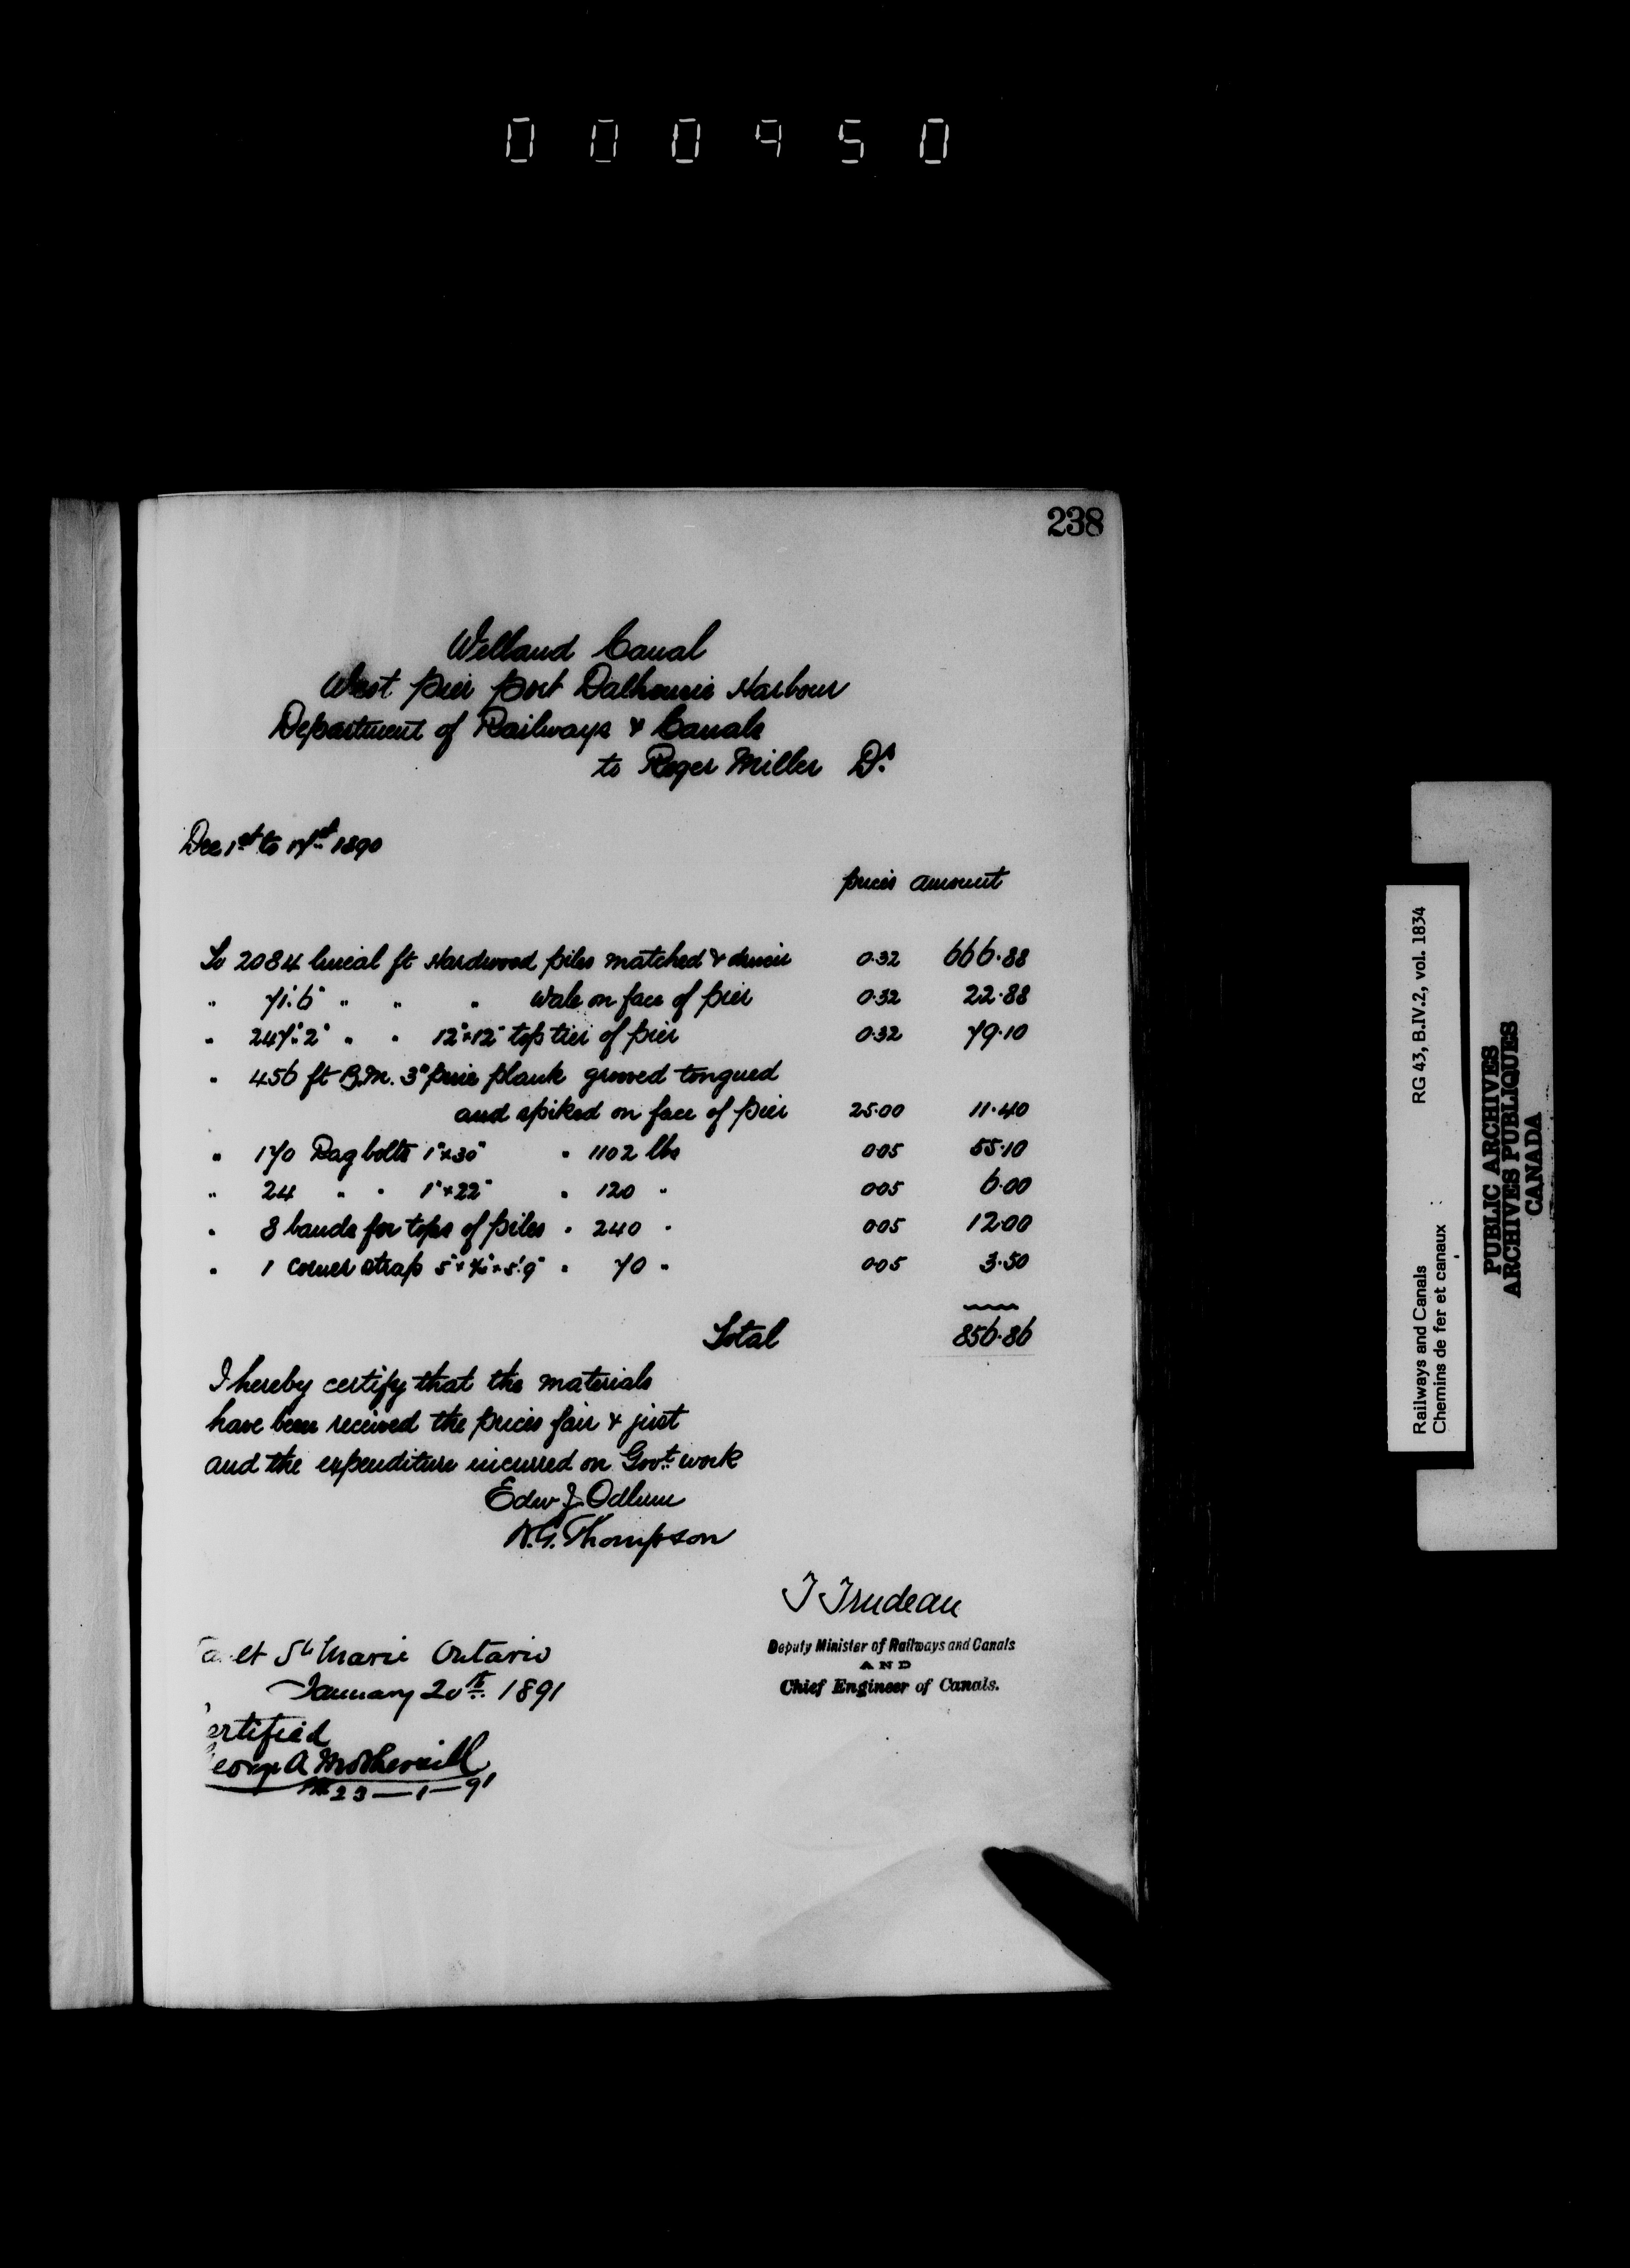 000950
238
Welland Canal
West pier port Dalhousie Harbour
Department of Railways & Canals
to Roger Miller Dr.
Dec 1st to 17th 1890
prices amount
To 2084 lineal ft Hardwood piles matched & driven 0.32 666.88
" 71'.6" " " " Wale on face of pier 0.32 22.88
" 247'.2" " " 12"x12" top tier of pier 0.32 79.10
" 456 ft B.M. 3" pine plank grooved tongued
and spiked on face of pier 25.00 11.40
" 170 Rag bolts 1"x30" " 1102 lbs 0.05 55.10
" 24 " " 1"x22" " 120 " 0.05 6.00
" 8 bands for tops of piles " 240 " 0.05 12.00
" 1 corner strap 5" x 5'.9" " 70 " 0.05 3.50
Total 856.86
I hereby certify that the materials
have been received the prices fair & just
and the expenditure incurred on Govt. work
Edw J. Odlum
W.G. Thompson
T Trudeau
Deputy Minister of Railways and Canals
AND
Chief Engineer of Canals.
ault St Marie Ontario
January 20th 1891
ertified
eorge A Mothersill
23-1-91
Railways and Canals RG 43, B.IV.2, vol. 1834
Chemins de fer et canaux
PUBLIC ARCHIVES
ARCHIVES PUBLIQUES
CANADA